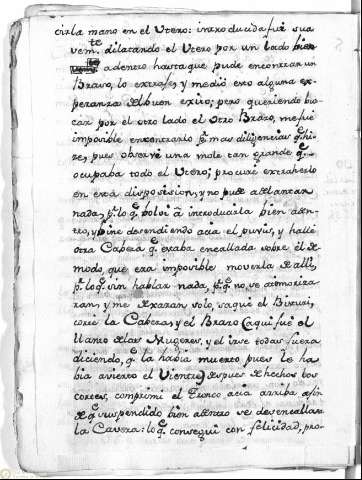 cirla mano en el Utero: introducida fuè sua
vem.te dilatando el Utero por un lado bien
adentro hasta que pude encontrar un
Brazo, lo extraje, y medió eso alguna es
peranza del buen exito; pero queriendo bus
car por el otro lado el otro Brazo, me fué
imposible encontrarlo p.r mas diligencias q.e hi
ze, pues observé una mole tan grande q.e
ocupaba todo el Utero; procuré extraherlo
en esta disposision, y no pude adelantar
nada, p.r lo q.e bolví à introducirla bien aden
tro, y vine desendiendo acia el puvis, y hallé
otra Cabeza q.e estaba encallada sobre él de
modo, que era imposible moverla de alli,
p.r lo q.e sin hablar nada, p.a q.e no se atemoriza
ran, y me dexaran solo, saqué el Bisturi,
corté la Cabeza, y el Brazo (aqui fué el
llanto de las Mugeres, y el irse todas fuera
diciendo, q.e la habia muerto pues le ha
bia avierto el Vientre) despues de hechos los
cortes, comprimi el Tronco acia arriba afin
de q.e suspendido bien adentro se desencallara
la Cavesa: lo q.e consegui con felicidad, pro-